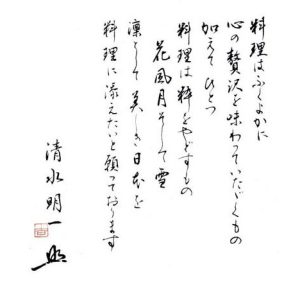 料理はふくよかに
心の贅沢を味わっていただくもの
加えてひとつ
料理は粋をやどすもの
花風月そして雪
凛として美しき日本を
料理に添えたいと願っております
清水明一